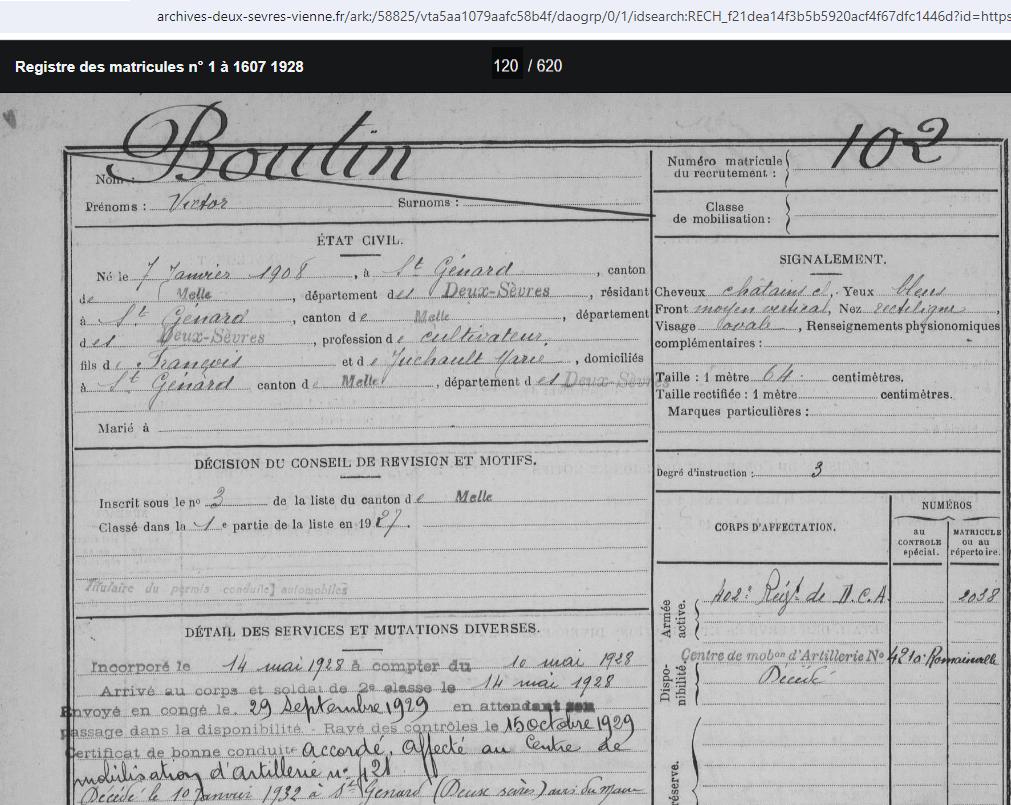 archives-deux-sevres-vienne.fr/ark:/58825/vta5aa1079aafc58b4f/daogrp/0/1/idsearch:RECH_f21dea14f3b5b5920acf4f67dfc1446d?id=https
Registre des matricules n° 1 à 1607 1928
120 / 620
Boutin
102
Nom :
Prénoms : Victor Surnoms :
Numéro matricule du recrutement :
Classe de mobilisation :
ÉTAT CIVIL.
Né le 7 Janvier 1908, à St Génard, canton
de Melle, département des Deux-Sèvres, résidant
à St Génard, canton de Melle, département
des Deux-Sèvres, profession de cultivateur,
fils de François et de Juchault Marie, domiciliés
à St Génard canton de Melle, département des Deux-Sèvres
Marié à
SIGNALEMENT.
Cheveux châtains cl, Yeux bleus
Front moyen vertical, Nez rectiligne,
Visage ovale, Renseignements physionomiques
complémentaires :
Taille : 1 mètre 64 centimètres.
Taille rectifiée : 1 mètre centimètres.
Marques particulières :
Degré d'instruction : 3
DÉCISION DU CONSEIL DE REVISION ET MOTIFS.
Inscrit sous le n° 3 de la liste du canton de Melle
Classé dans la 1e partie de la liste en 1927
Titulaire du permis conduire automobiles
CORPS D'AFFECTATION.
NUMÉROS
au CONTROLE spécial.
MATRICULE ou au répertoire.
Armée active.
402e Régt de D.C.A. 2038
Disponibilité.
Centre de mobon d'Artillerie No 421 à Romainville
Décédé
réserve.
DÉTAIL DES SERVICES ET MUTATIONS DIVERSES.
Incorporé le 14 mai 1928 à compter du 10 mai 1928
Arrivé au corps et soldat de 2e classe le 14 mai 1928
Envoyé en congé le 29 Septembre 1929 en attendant son
passage dans la disponibilité. Rayé des contrôles le 15 octobre 1929
Certificat de bonne conduite accordé. Affecté au Centre de
mobilisation d'Artillerie n° 421
Décédé le 10 Janvier 1932 à St Génard (Deux sèvres) avis du Maire